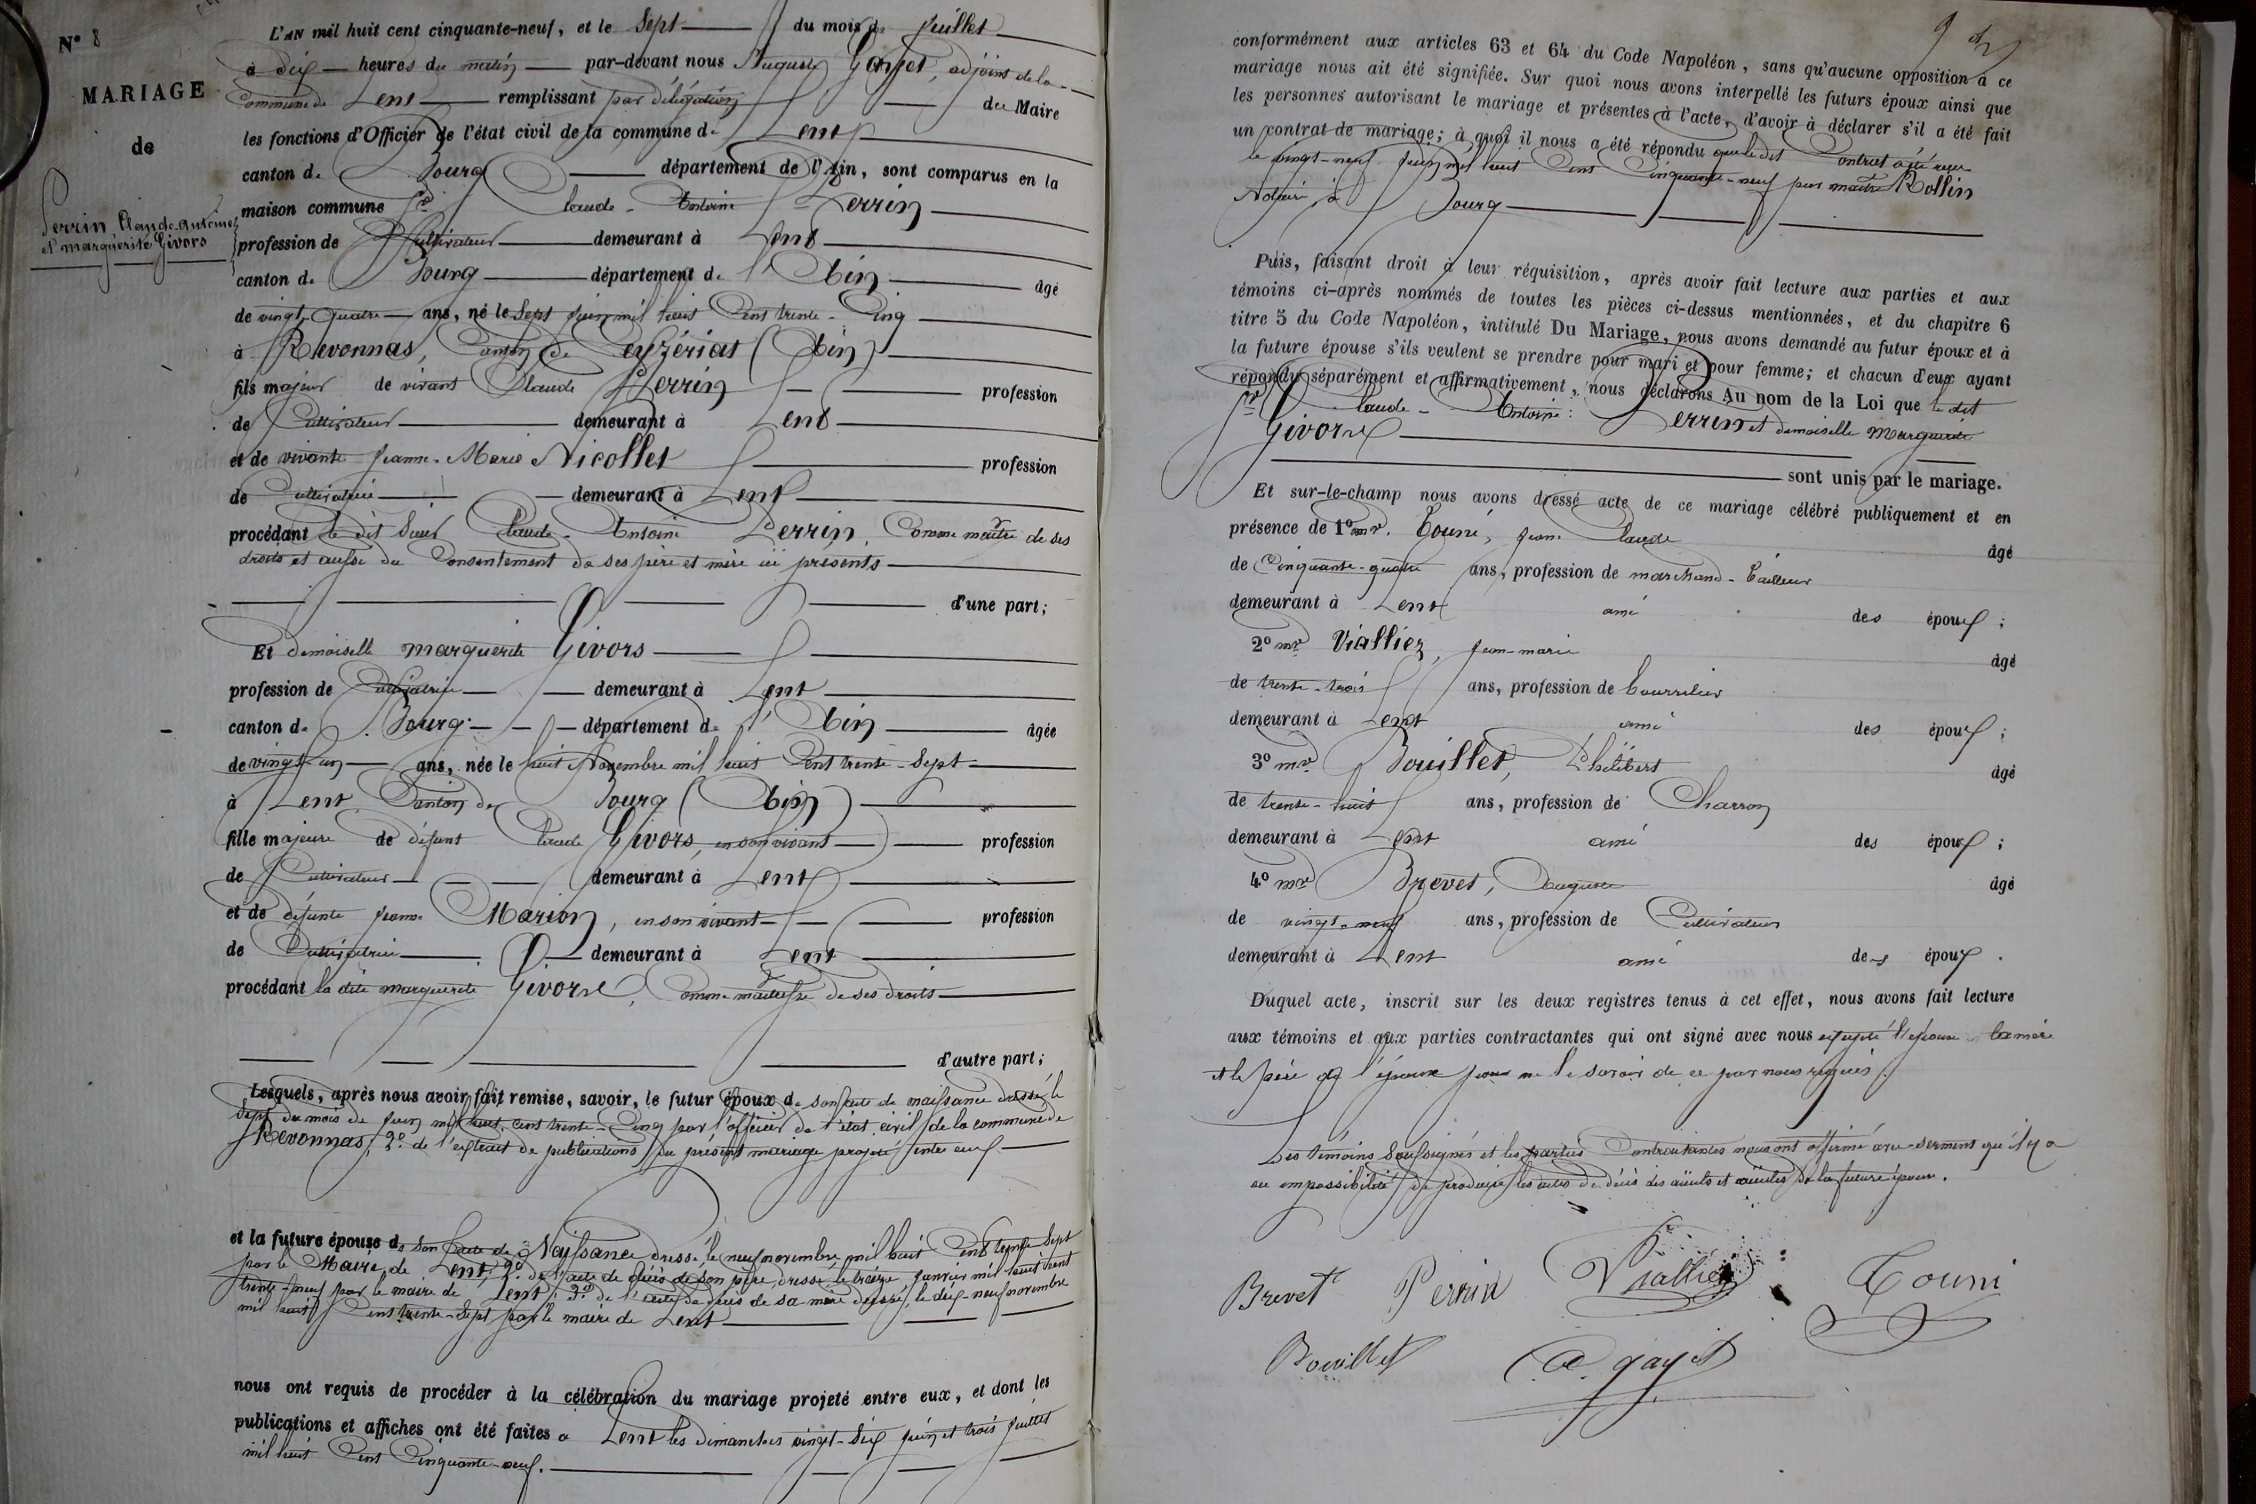 N° 8
MARIAGE
de
Perrin Claude-Antoine
et marguerite Givors
L'AN mil huit cent cinquante-neuf, et le Sept du mois de Juillet
à dix heures du matin par-devant nous Auguste Gayet, adjoint de la
Commune de Lent remplissant par délégation du Maire
les fonctions d'Officier de l'état civil de la commune de Lent
canton de Bourg département de l'Ain, sont comparus en la
maison commune Sr Claude-Antoine Perrin
profession de Cultivateur demeurant à Lent
canton de Bourg département de l'Ain âgé
de vingt-quatre ans, né le Sept Juin mil huit Cent trente-Cinq
à Revonnas, Canton de Ceyzériat (Ain)
fils majeur de vivant Claude Perrin profession
de Cultivateur demeurant à Lent
et de vivante Jeanne-Marie Nicollet profession
de Cultivatrice demeurant à Lent
procédant le dit Sieur Claude-Antoine Perrin, Comme maître de ses
droits et aussi du Consentement de ses père et mère ici présents
d'une part;
Et demoiselle marguerite Givors
profession de Cultivatrice demeurant à Lent
canton de Bourg département de l'Ain âgée
de vingt-un ans, née le huit Novembre mil huit Cent trente-Sept
à Lent Canton de Bourg (Ain)
fille majeure de défunt Claude Givors, en son vivant profession
de Cultivateur demeurant à Lent
et de défunte Jeanne Marion, en son vivant profession
de Cultivatrice demeurant à Lent
procédant la dite marguerite Givors, Comme maîtresse de ses droits
d'autre part;
Lesquels, après nous avoir fait remise, savoir, le futur époux de son acte de naissance dressé le
Sept du mois de Juin mil huit cent trente-Cinq par l'officier de l'état civil de la commune de
Revonnas; 2° de l'extrait de publications du présent mariage projeté entre eux.
et la future épouse de Son acte de Naissance dressé le neuf novembre mil huit Cent trente Sept
par le Maire de Lent, 2° de l'acte de décès de son père, dressé le treize Janvier mil huit cent
trente-neuf par le maire de Lent; 3° de l'acte de décès de sa mère dressé, le dix-neuf novembre
mil huit Cent trente-Sept par le maire de Lent
nous ont requis de procéder à la célébration du mariage projeté entre eux, et dont les
publications et affiches ont été faites à Lent les dimanches vingt-Six Juin et trois Juillet
mil huit Cent Cinquante-neuf.
9
conformément aux articles 63 et 64 du Code Napoléon, sans qu'aucune opposition à ce
mariage nous ait été signifiée. Sur quoi nous avons interpellé les futurs époux ainsi que
les personnes autorisant le mariage et présentes à l'acte, d'avoir à déclarer s'il a été fait
un contrat de mariage; à quoi il nous a été répondu que le dit Contrat a été reçu
le vingt-neuf Juin mil huit Cent Cinquante-neuf par maître Rollin
Notaire à Bourg
Puis, faisant droit à leur réquisition, après avoir fait lecture aux parties et aux
témoins ci-après nommés de toutes les pièces ci-dessus mentionnées, et du chapitre 6
titre 5 du Code Napoléon, intitulé Du Mariage, nous avons demandé au futur époux et à
la future épouse s'ils veulent se prendre pour mari et pour femme; et chacun d'eux ayant
répondu séparément et affirmativement, nous déclarons Au nom de la Loi que le dit
Sr Claude-Antoine Perrin et demoiselle Marguerite
Givors
sont unis par le mariage.
Et sur-le-champ nous avons dressé acte de ce mariage célébré publiquement et en
présence de 1° mr. Touni, Jean Claude âgé
de Cinquante-quatre ans, profession de marchand-Tailleur
demeurant à Lent ami des époux;
2° mr Vialliez, Jean-marie âgé
de trente-trois ans, profession de bourrelier
demeurant à Lent ami des époux;
3° mr Bouillet, Philibert âgé
de trente-huit ans, profession de Charron
demeurant à Lent ami des époux;
4° mr Brevet, Auguste âgé
de vingt-neuf ans, profession de Cultivateur
demeurant à Lent ami des époux.
Duquel acte, inscrit sur les deux registres tenus à cet effet, nous avons fait lecture
aux témoins et aux parties contractantes qui ont signé avec nous excepté l'épouse la mère
et le père de l'époux pour ne le savoir de ce par nous requis.
Les témoins Soussignés et les parties Contractantes nous ont affirmé avec serment qu'il y a
eu impossibilité de produire les actes de décès des aïeuls et aïeules de la future épouse.
Brevet Perrin Vialliez Touni
Bouillet A. gayet